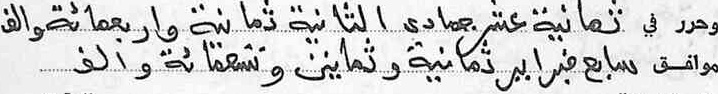 وحرر في ثمانية عشر جمادى الثانية ثمانية واربعمائة والف
موافق سابع فبراير ثمانية وثمانين وتسعمائة والف